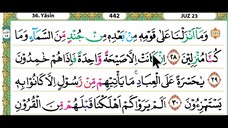 36. Yâsîn 442 JUZ 23
وَمَآ أَنزَلْنَا عَلَىٰ قَوْمِهِۦ مِنۢ بَعْدِهِۦ مِن جُندٍ مِّنَ ٱلسَّمَآءِ وَمَا
كُنَّا مُنزِلِينَ ٢٨ إِن كَانَتْ إِلَّا صَيْحَةً وَٰحِدَةً فَإِذَا هُمْ خَٰمِدُونَ
٢٩ يَٰحَسْرَةً عَلَى ٱلْعِبَادِ مَا يَأْتِيهِم مِّن رَّسُولٍ إِلَّا كَانُوا۟ بِهِۦ
يَسْتَهْزِءُونَ ٣٠ أَلَمْ يَرَوْا۟ كَمْ أَهْلَكْنَا قَبْلَهُم مِّنَ ٱلْقُرُونِ